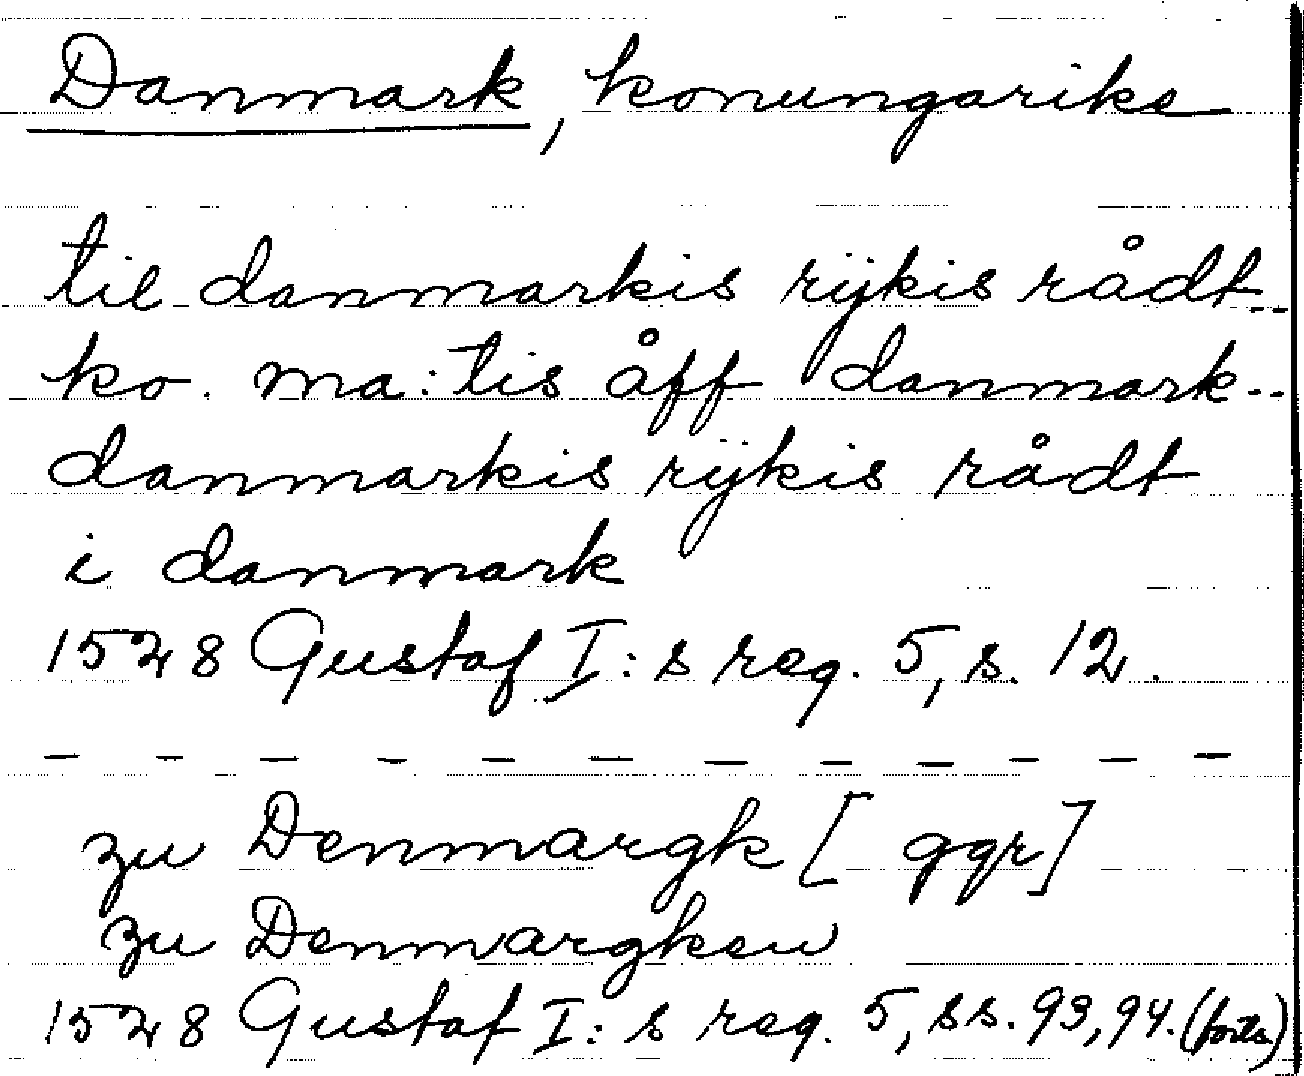 Danmark, konungarike
til danmarkis rijkis rådt--
ko. ma:tis åff danmark--
danmarkis rijkis rådt
i danmark
1528 Gustaf I:s reg. 5, s. 12.
- - - - - - - - - - -
zu Denmargk [ggr]
zu Denmargken
1528 Gustaf I:s reg. 5, ss. 93, 94. (forts)